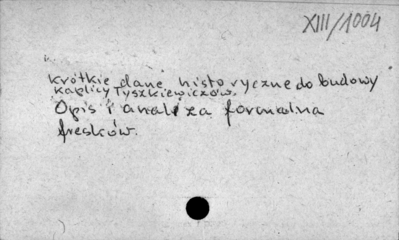 XIII/1004
krótkie dane historyczne do budowy
kaplicy Tyszkiewiczów.
Opis i analiza formalna
fresków.